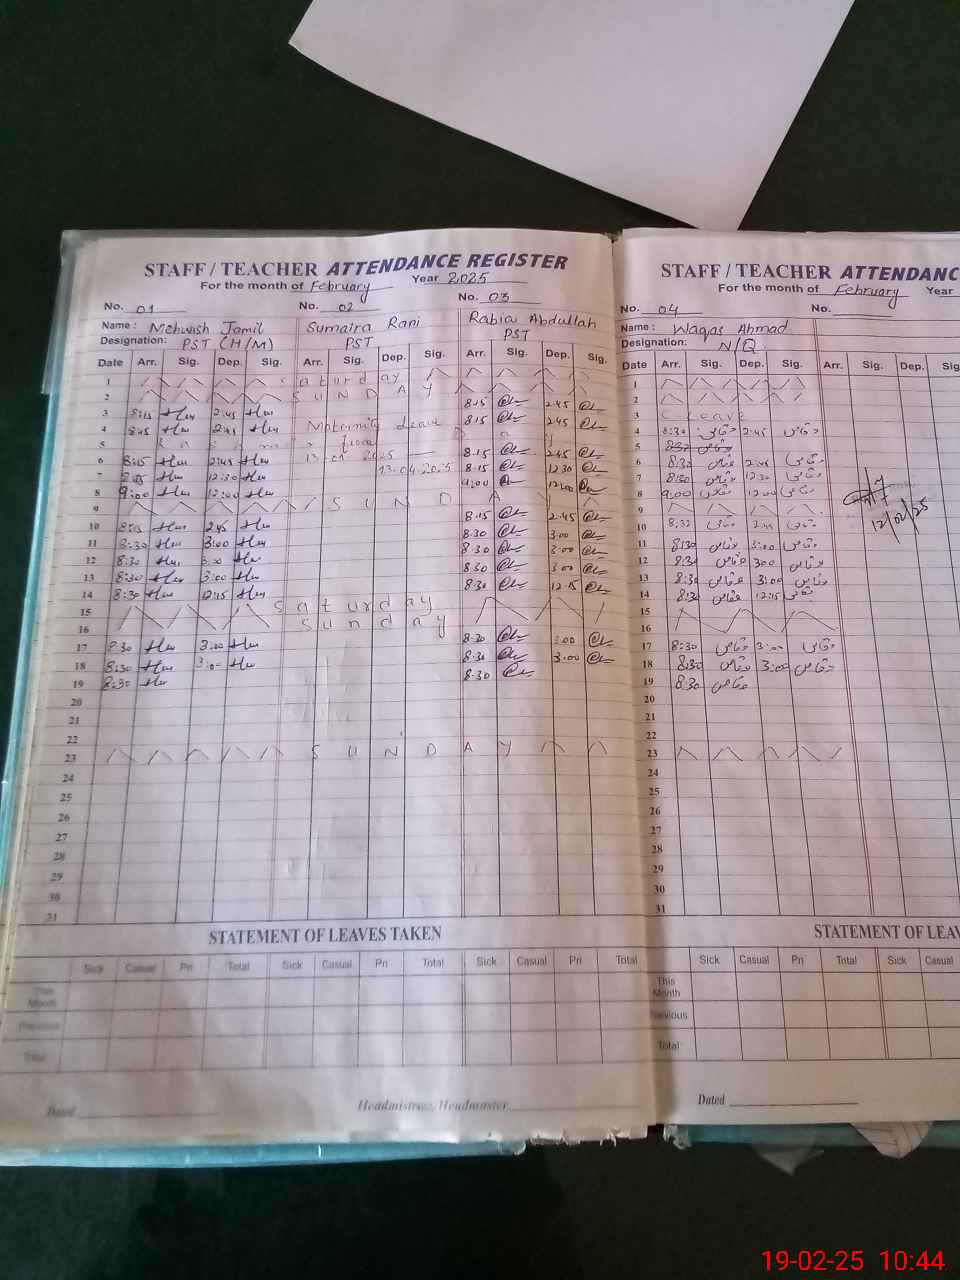 STAFF / TEACHER ATTENDANCE REGISTER
For the month of February Year 2025
No. 01 No. 02 No. 03
Name : Mehwish Jamil Sumaira Rani Rabia Abdullah
Designation: PST (H/M) PST PST
Date Arr. Sig. Dep. Sig. Arr. Sig. Dep. Sig. Arr. Sig. Dep. Sig.
1 Saturday
2 SUNDAY
3 8:15 2:45 8.15 2.45
4 8:45 2:45 Maternity Leave 8.15 2.45
5 Kashmir Day
6 8:15 2:45 13.01.2025 8.15 2.45
7 8:15 12:30 13.04.2025 8.15 12.30
8 9:00 12:00 9.00 12.00
9 SUNDAY
10 8:15 2:45 8.15 2.45
11 8:30 3:00 8.30 3.00
12 8:30 3:00 8.30 3.00
13 8:30 3:00 8.30 3.00
14 8:30 12:15 8.30 12.15
15 Saturday
16 Sunday
17 8:30 3:00 8.30 3.00
18 8:30 3:00 8.30 3.00
19 8:30 8.30
20
21
22
23 SUNDAY
24
25
26
27
28
29
30
31
STATEMENT OF LEAVES TAKEN
Sick Casual Pri Total Sick Casual Pri Total Sick Casual Pri Total
This Month
Previous
Total
Dated Headmistress, Headmaster
STAFF / TEACHER ATTENDANC
For the month of February Year
No. 04 No.
Name : Waqas Ahmad
Designation: N/Q
Date Arr. Sig. Dep. Sig. Arr. Sig. Dep. Sig
1
2
3 C Leave
4 8:30 وقاص 2:45 وقاص
5 8:30 وقاص
6 8:30 وقاص 2:45 وقاص
7 8:30 وقاص 12:30 وقاص
8 9:00 وقاص 12:00 وقاص
12/02/25
9
10 8:30 وقاص 2:45 وقاص
11 8:30 وقاص 3:00 وقاص
12 8:30 وقاص 3:00 وقاص
13 8:30 وقاص 3:00 وقاص
14 8:30 وقاص 12:15 وقاص
15
16
17 8:30 وقاص 3:00 وقاص
18 8:30 وقاص 3:00 وقاص
19 8:30 وقاص
20
21
22
23
24
25
26
27
28
29
30
31
STATEMENT OF LEAV
Sick Casual Pri Total Sick Casual
This Month
Previous
Total
Dated
19-02-25 10:44